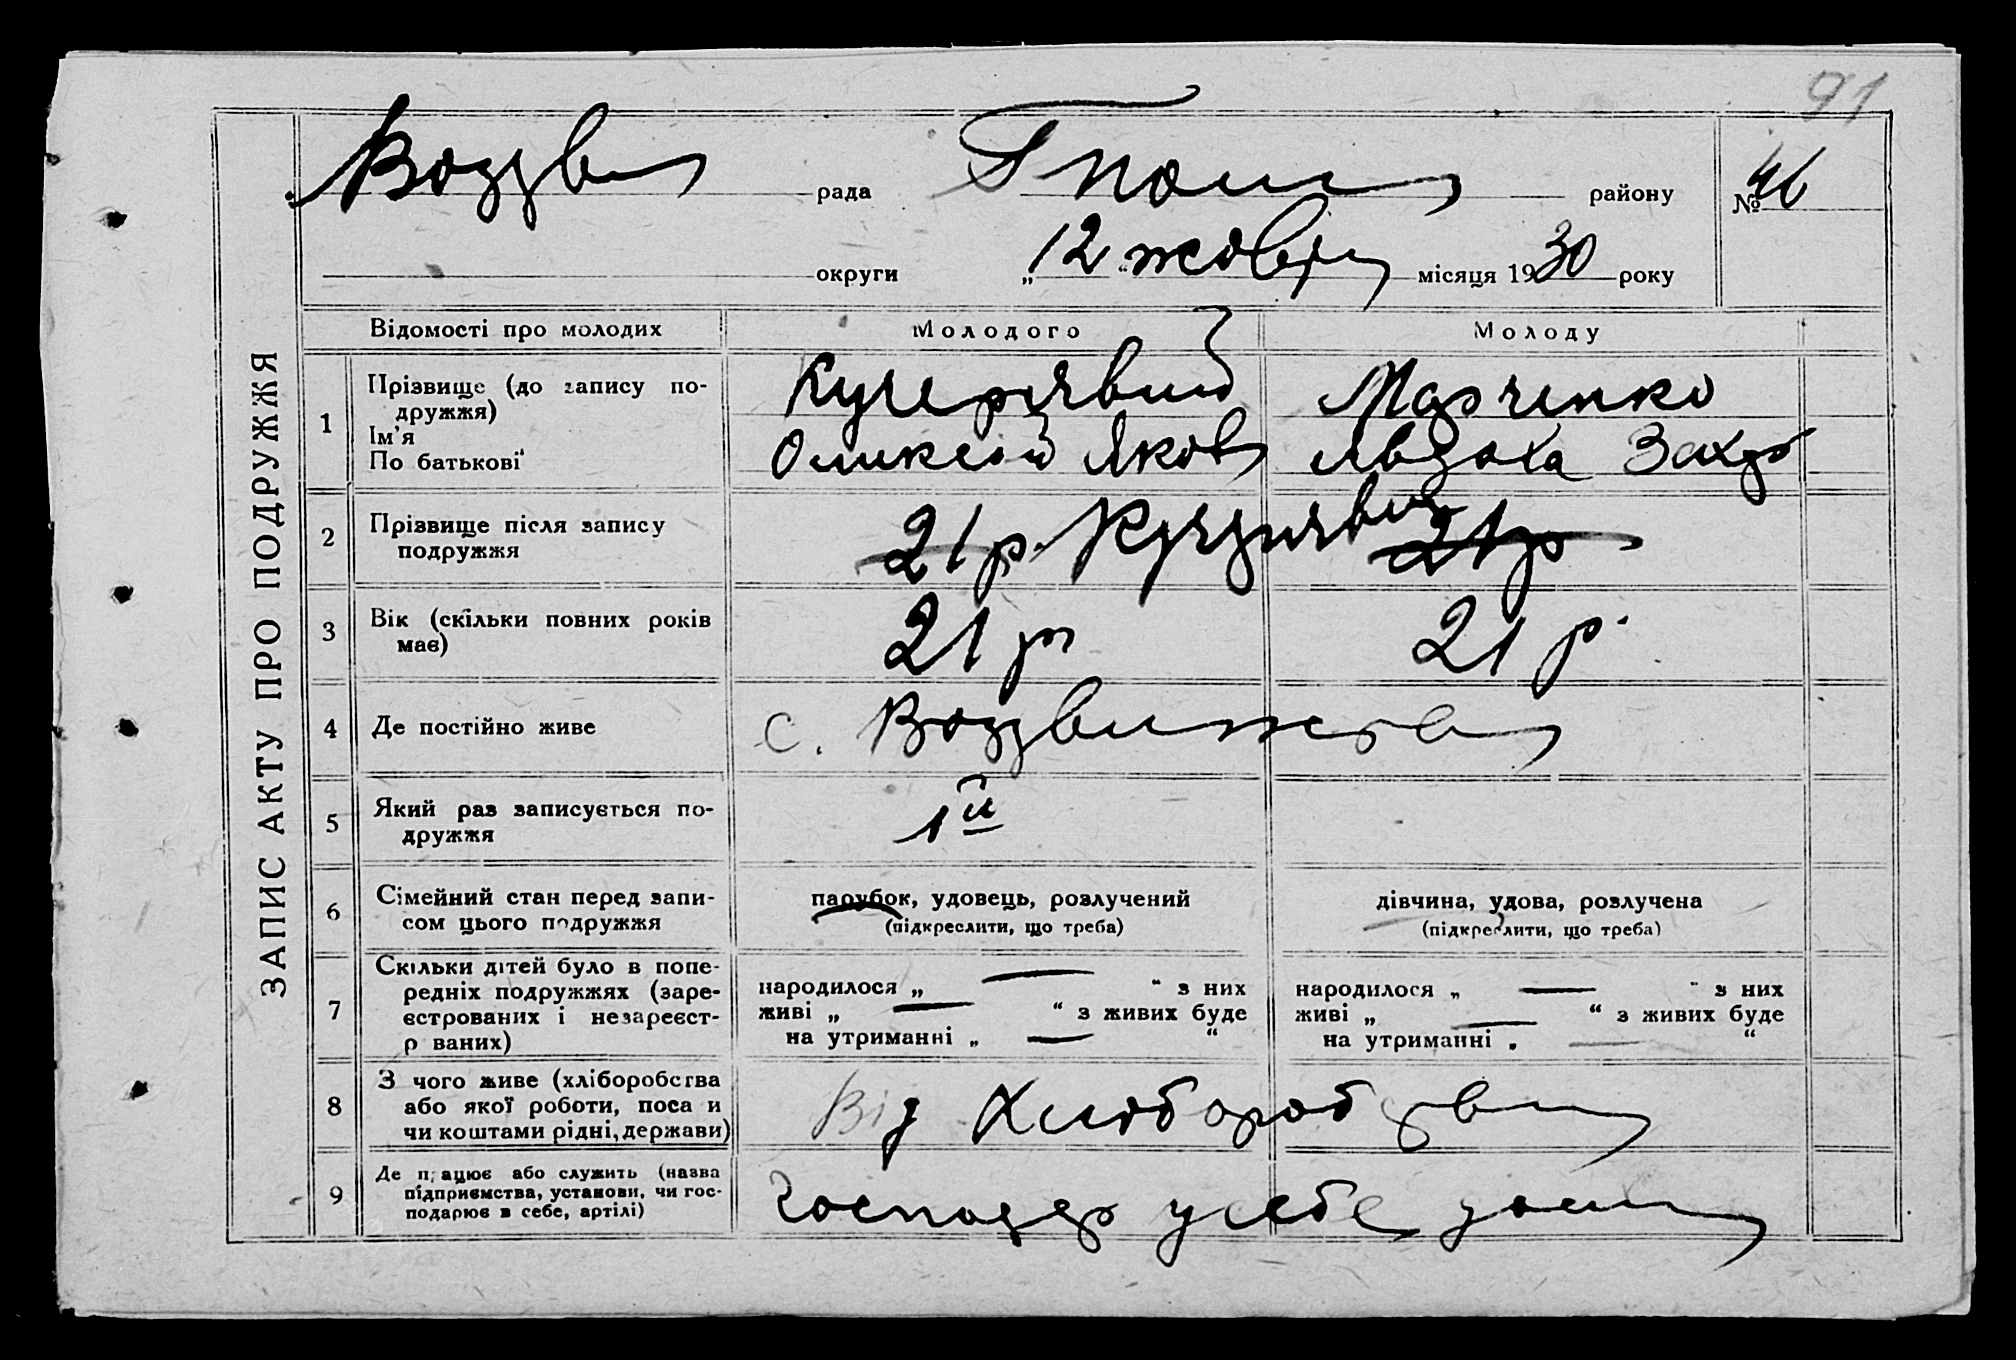 91
Воздв рада
району
№ 46
округи „12“ жовтн місяця 1930 року
ЗАПИС АКТУ ПРО ПОДРУЖЖЯ
Відомості про молодих
Молодого
Молоду
1
Прізвище (до запису по-
дружжя)
Ім'я
По батькові
Кучерявий
Олексій Яков
Марченко
Явдоха Захар
2
Прізвище після запису
подружжя
21 р. Кучеряви
21 р
3
Вік (скільки повних років
має)
21 р
21 р.
4
Де постійно живе
с. Воздвиженськ
5
Який раз записується по-
дружжя
1й
6
Сімейний стан перед запи-
сом цього подружжя
парубок, удовець, розлучений
(підкреслити, що треба)
дівчина, удова, розлучена
(підкреслити, що треба)
7
Скільки дітей було в попе-
редніх подружжях (заре-
єстрованих і незареєст-
р ваних)
народилося „ — “ з них
живі „ — “ з живих буде
на утриманні „ — “
народилося „ — “ з них
живі „ — “ з живих буде
на утриманні „ — “
8
З чого живе (хліборобства
або якої роботи, поса и
чи коштами рідні, держави)
Від Хліборобства
9
Де працює або служить (назва
підприємства, установи, чи гос-
подарює в себе, артілі)
Господар у себе дома